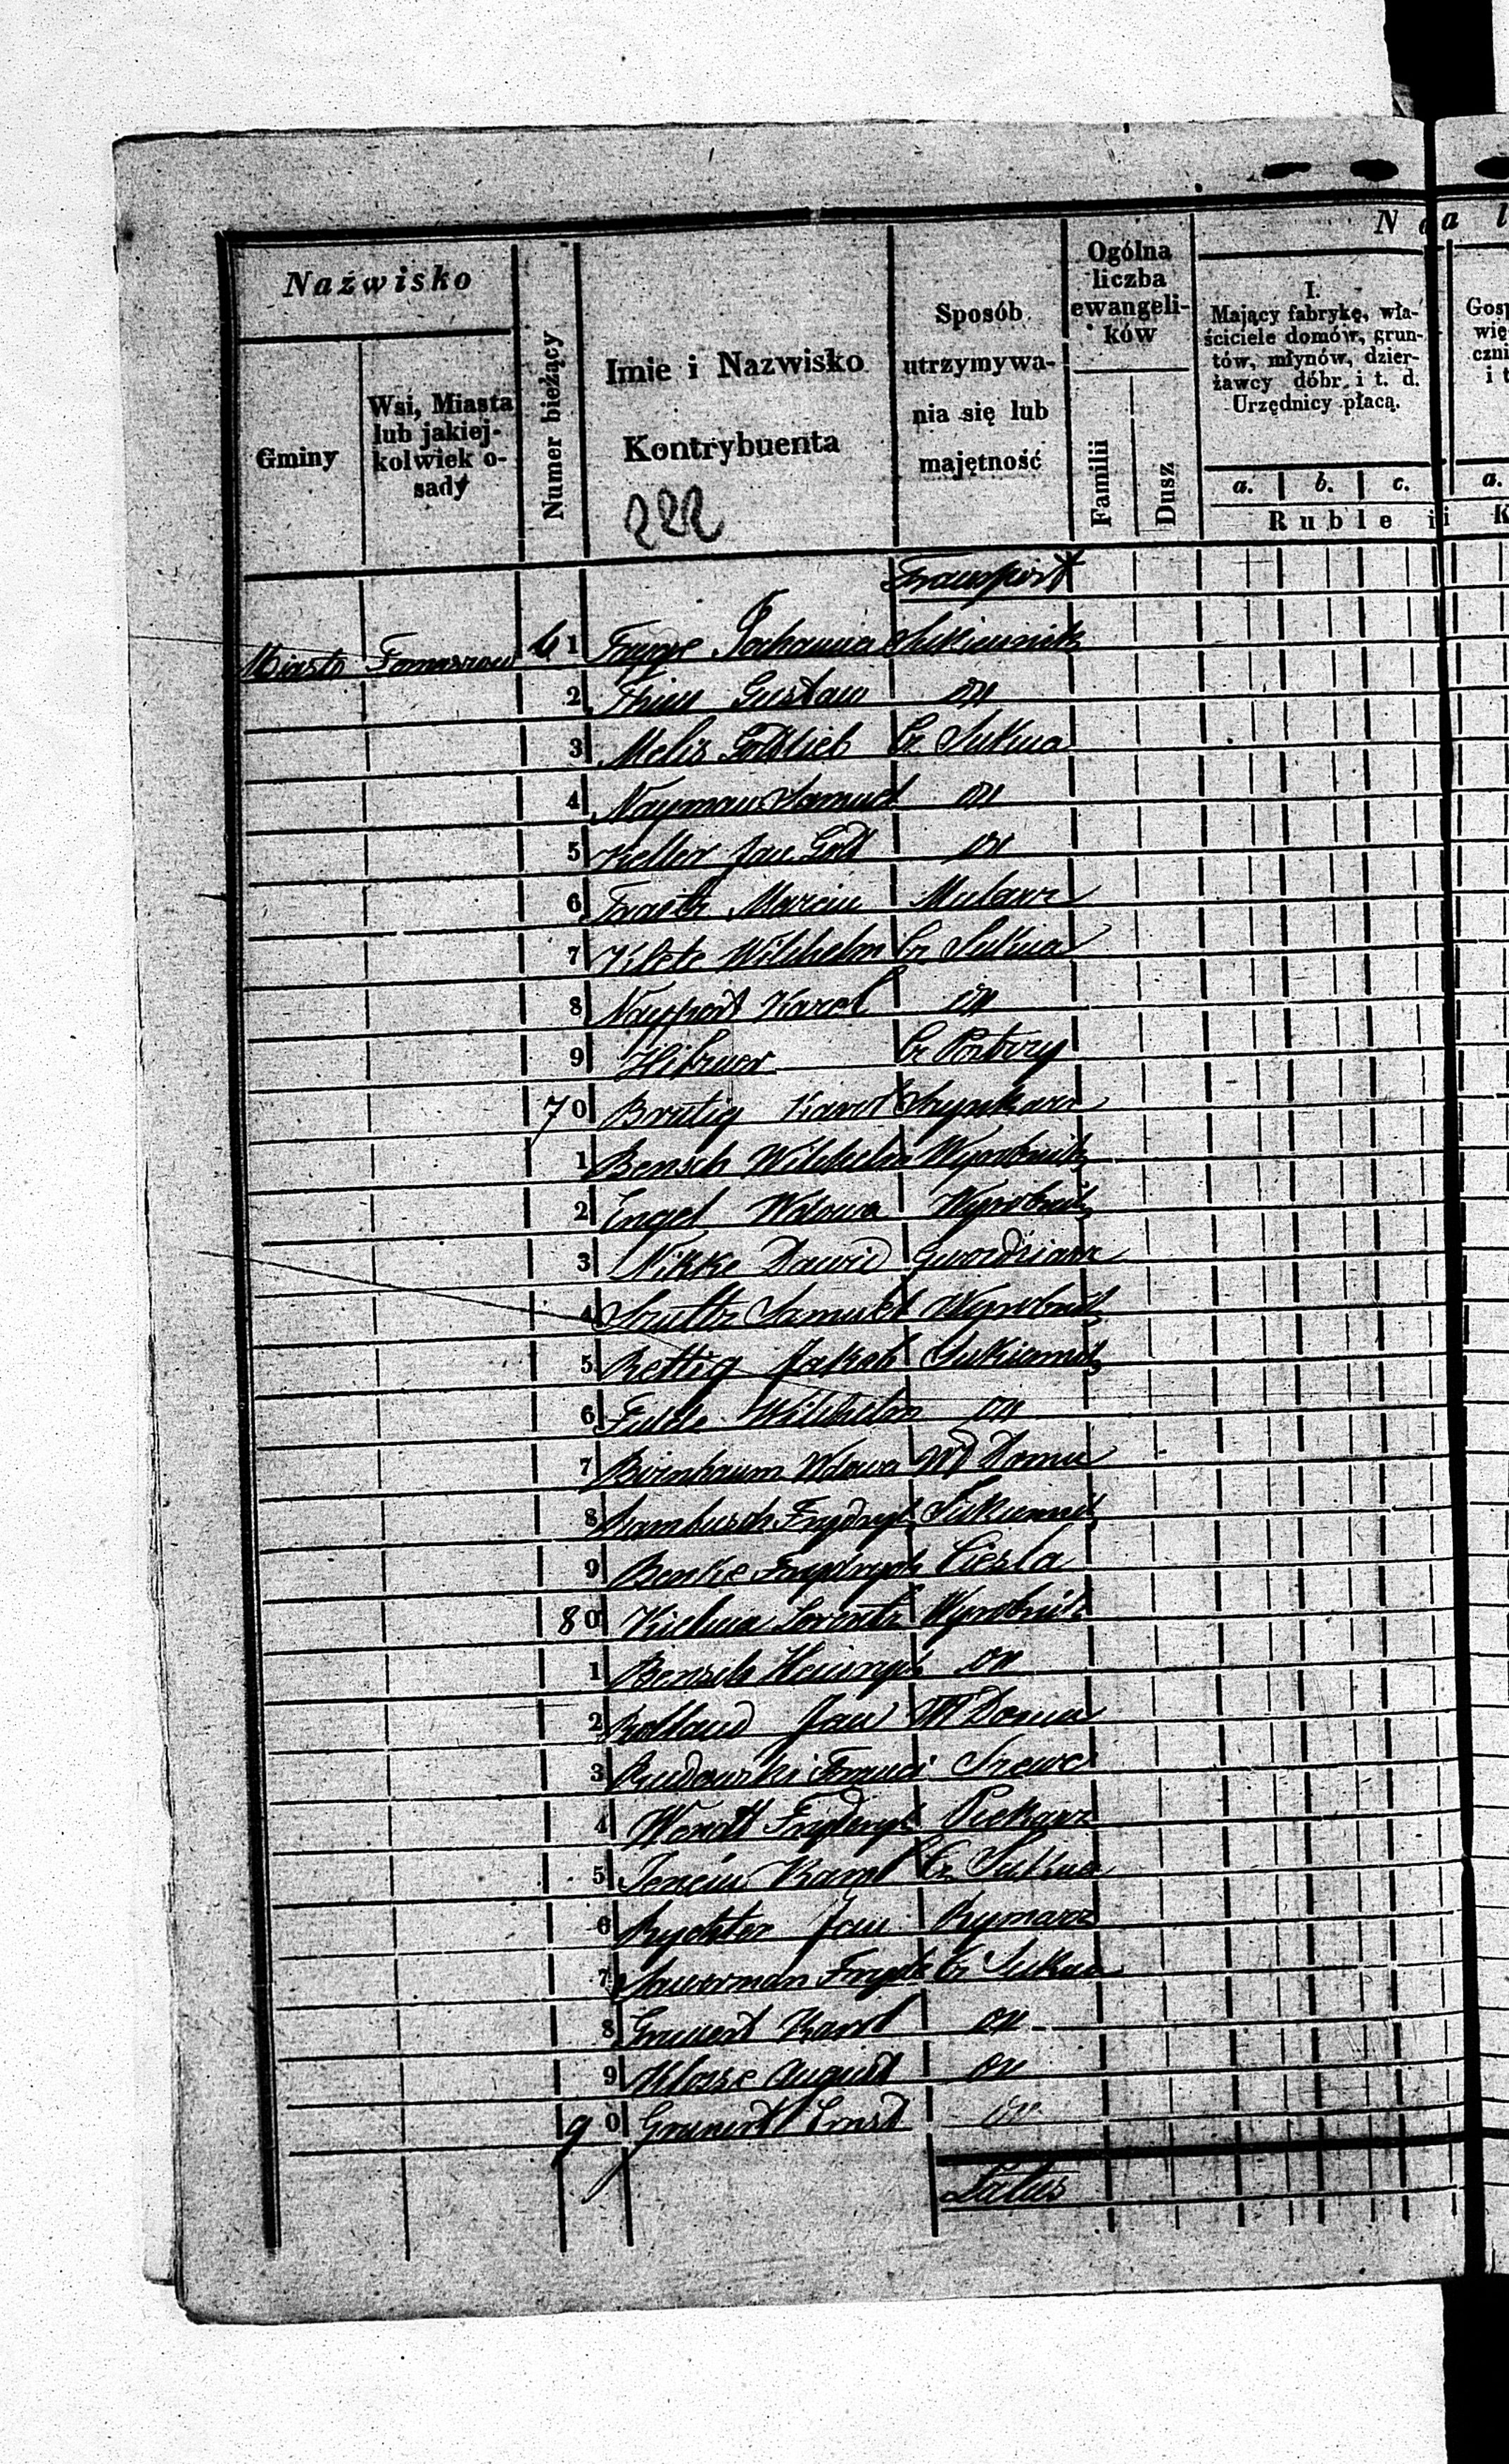 Nazwisko
Gminy
Wsi, Miasta lub jakiej-kolwiek o-sady
Numer bieżący
Imie i Nazwisko
Kontrybuenta
222
Sposób
utrzymywa-
nia się lub
majętność
Ogólna
liczba
ewangeli-
ków
Familii
Dusz
N a
I.
Mający fabrykę, wła-
ściciele domów, grun-
tów, młynów, dzier-
żawcy dóbr, i t. d.
Urzędnicy płacą.
a. b. c.
a.
Ruble i
Transport
Miasto Tomaszow 61 Johanna Sukiennik
2 Gustaw on
3 Melis Gottlieb Cz Sukna
4 Nayman Samuel on
5 Keller Jan Gott on
6 Marcin Mularz
7 Klete Wilhelm Cz Sukna
8 Karol on
9 Hibner Cz
70 Brutig Karol Szynkarz
1 Bensch Wilhelm Wyrobnik
2 Engel Wdowa Wyrobnik
3 Nikke Dawid Gwozdziarz
4 Szultz Samuel Wyrobnik
5 Rettig Jakob Sukiennik
6 Fulde Wilhelm on
7 Birnbaum Wdowa Wł Domu
8 Frydrych Sukiennik
9 Benke Frydrych Ciesla
80 Lorentz Wyrobnik
1 Bensch Heinrych on
2 Rolland Jan Wł Domu
3 Rudowski Franci Szewc
4 Wendt Fryderyk Piekarz
5 Karol Cz Sukna
6 Rychter Jan Rymarz
7 Sauerman Fryde Cz Sukna
8 Grunert Karol on
9 Klosse August on
90 Grunert Ernst on
Latus